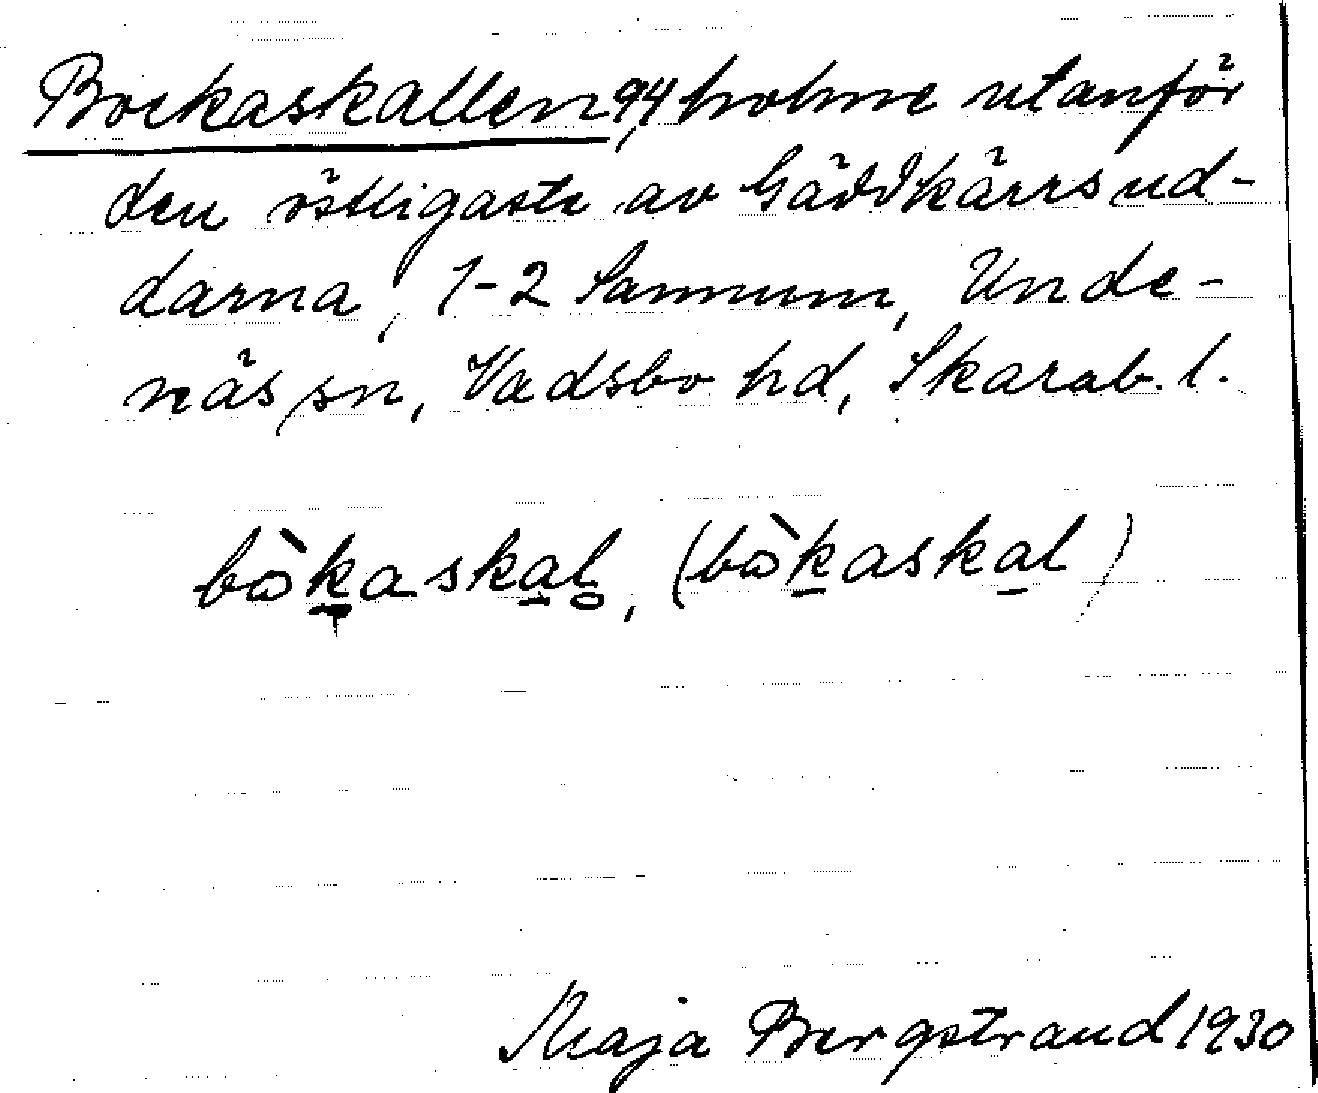 Bockaskallen 94, holme utanför
den östligaste av Gäddkärrsud-
darna, 1-2 Sannum, Unde-
näs sn, Vadsbo hd, Skarab. l.
bòkaskal, (bòkaskal)
Maja Bergstrand 1930